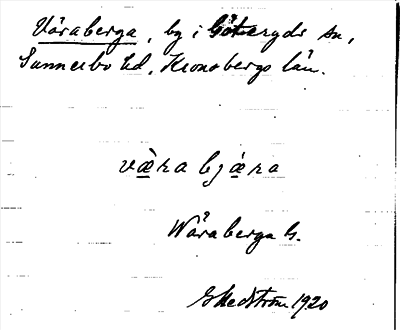 Våraberga, by i Göteryds sn,
Sunnerbo hd, Kronobergs län.
væ̀ra bjæ̀ra
Wåraberga G.
G Hedström 1920